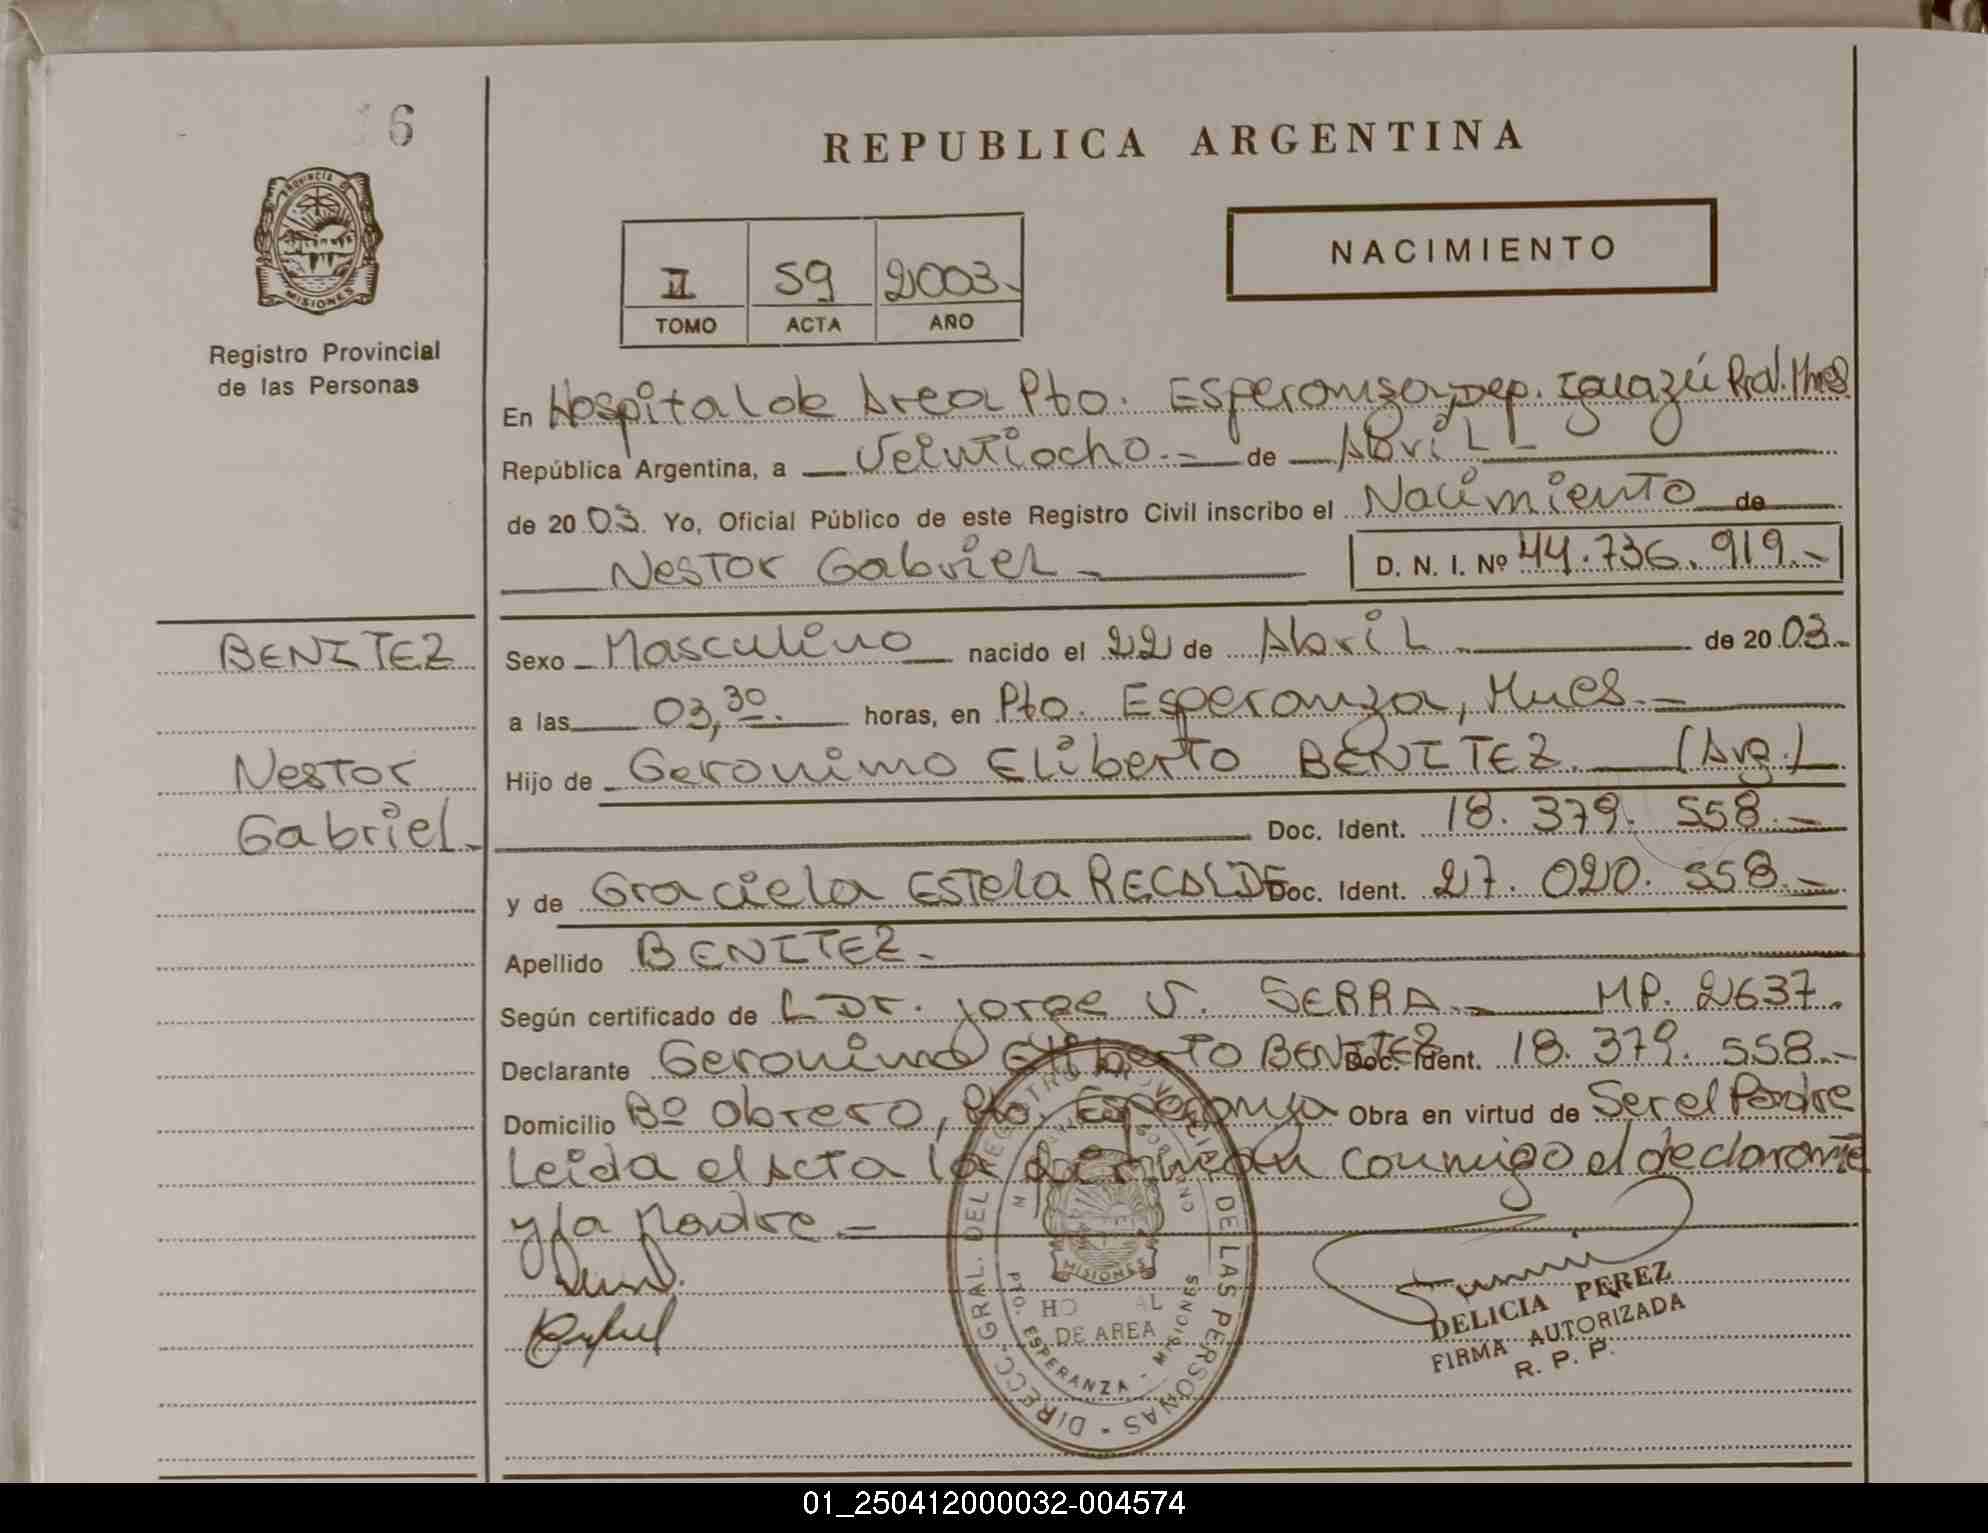 6
REPUBLICA ARGENTINA
PROVINCIA DE
MISIONES
Registro Provincial
de las Personas
II 59 2003.-
TOMO ACTA AÑO
NACIMIENTO
En Hospital de Area Pto. Esperanza, Dep. Iguazú
República Argentina, a Veintiocho.- de Abril.-
de 2003. Yo, Oficial Público de este Registro Civil inscribo el Nacimiento de
Nestor Gabriel.- D. N. I. Nº 44.736.919.-
BENITEZ
Nestor
Gabriel.-
Sexo Masculino nacido el 22 de Abril.- de 2003.-
a las 03,30. horas, en Pto. Esperanza, Mnes.-
Hijo de Geronimo Eliberto BENITEZ. (Arg.)
Doc. Ident. 18.379.558.-
y de Graciela Estela RECALDE Doc. Ident. 27.020.558.-
Apellido BENITEZ.-
Según certificado de L Dr. Jorge V. SERRA.- MP. 2637.
Declarante Geronimo Eliberto BENITEZ Doc. Ident. 18.379.558.-
Domicilio Bº Obrero, Pto. Esperanza Obra en virtud de Ser el Padre
Leida el Acta la firman conmigo el declarante
y la Madre.-
DIRECC. GRAL. DEL REGISTRO PROVINCIAL DE LAS PERSONAS
MISIONES
DE AREA
PTO. ESPERANZA - MISIONES
DELICIA PEREZ
FIRMA AUTORIZADA
R. P. P.
01_250412000032-004574